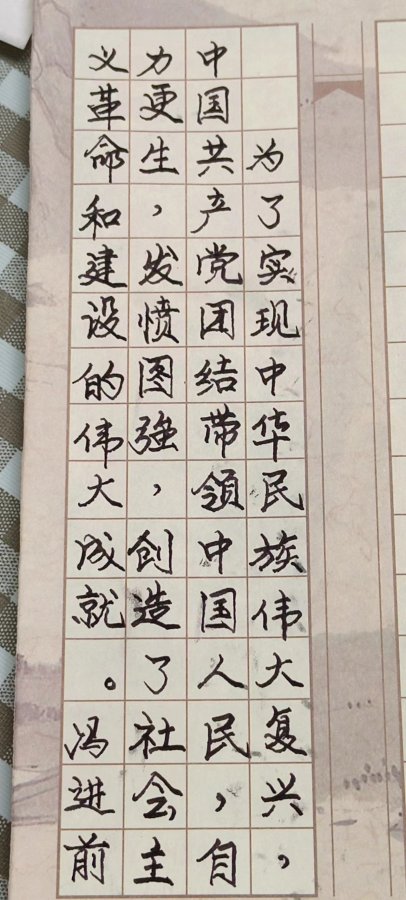 为了实现中华民族伟大复兴，
中国共产党团结带领中国人民，自
力更生，发愤图强，创造了社会主
义革命和建设的伟大成就。冯进前